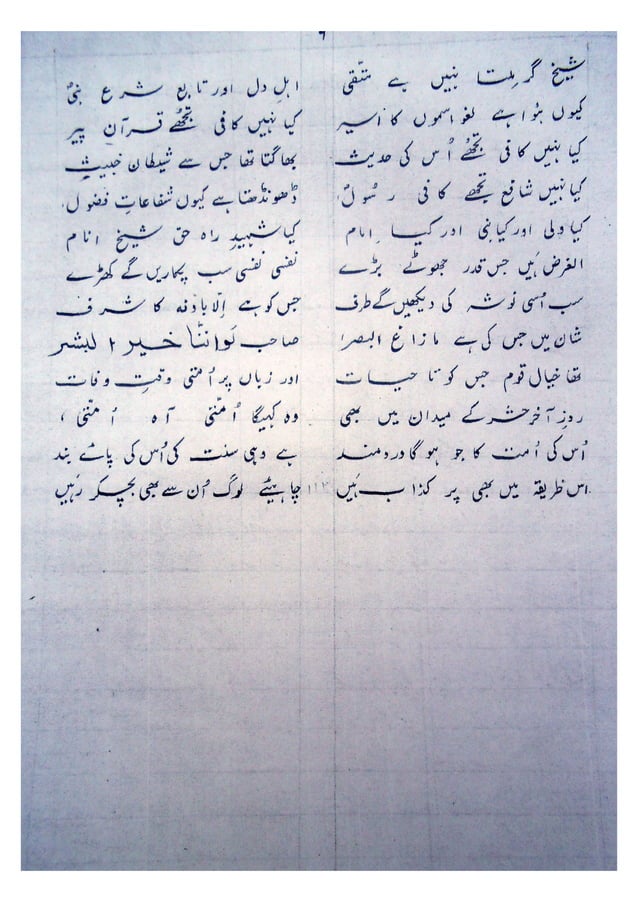 ۹
شیخ گر ملتا نہیں ہے متقی اہلِ دل اور تابعِ شرعِ نبیؐ
کیوں ہوا ہے لغو اسموں کا اسیر کیا نہیں کافی تجھے قرآن پیر
کیا نہیں کافی تجھے اُس کی حدیث بھاگتا تھا جس سے شیطان خبیث
کیا نہیں شافع تجھے کافی رسولؐ ڈھونڈھتا ہے کیوں شفاعاتِ فضول
کیا ولی اور کیا نبی اور کیا امام کیا شہیدِ راہِ حق شیخِ انام
الغرض ہیں جس قدر چھوٹے بڑے نفسی نفسی سب پکاریں گے کھڑے
سب اُسی نوشہ کی دیکھیں گے طرف جس کو ہے اِلّا بِاِذنِہ کا شرف
شان میں جس کی ہے مازاغ البصر صاحب لَوا اننا خیر البشر
تھا خیال قوم جس کو تا حیات اور زباں پر اُمتی وقتِ وفات
روزِ آخر حشر کے میدان میں بھی وہ کہیگا اُمتی آہ اُمتی
اُس کی اُمت کا جو ہوگا دردمند ہے وہی سنت کی اُس کی پائے بند
اس طریقہ میں بھی پر کذاب ہیں چاہیئے لوگ اُن سے بھی بچکر رہیں